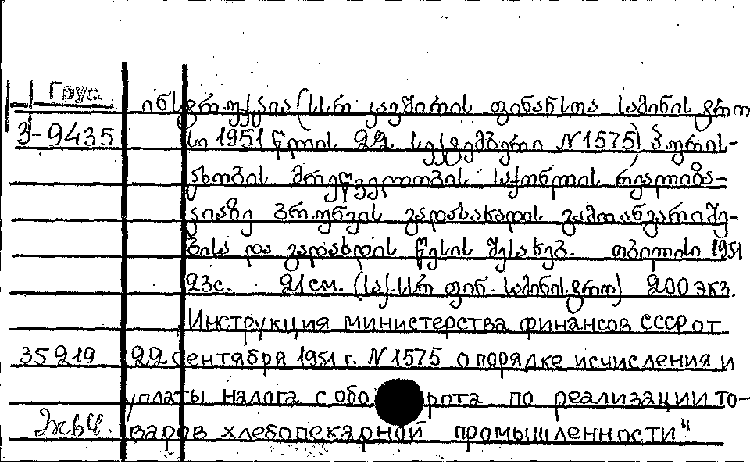 Груз. ინსტრუქცია (სსრ კავშირის ფინანსთა სამინისტრო
3-9435 სი 1951 წლის 22 სექტემბერი N 1575) პურის-
ცხობის მრეწველობის საქონლის რეალიზა-
ციაზე ბრუნვის გადასახადის გამოანგარიშე-
ბისა და გადახდის წესის შესახებ. თბილისი 1951
23с. 21 см. (საქ. სსრ ფინ. სამინისტრო) 200 экз.
Инструкция министерства финансов СССР от
35219 22 сентября 1951 г. N 1575 о порядке исчисления и
уплаты налога с оборота по реализации то-
варов хлебопекарной промышленности"